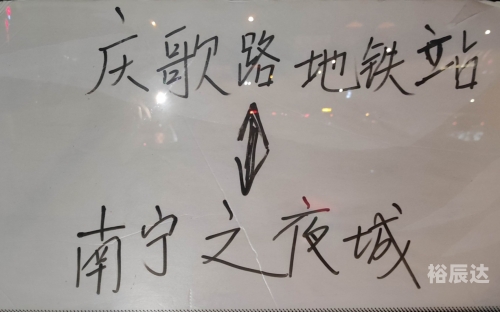 庆歌路地铁站
南宁之夜城
裕辰达